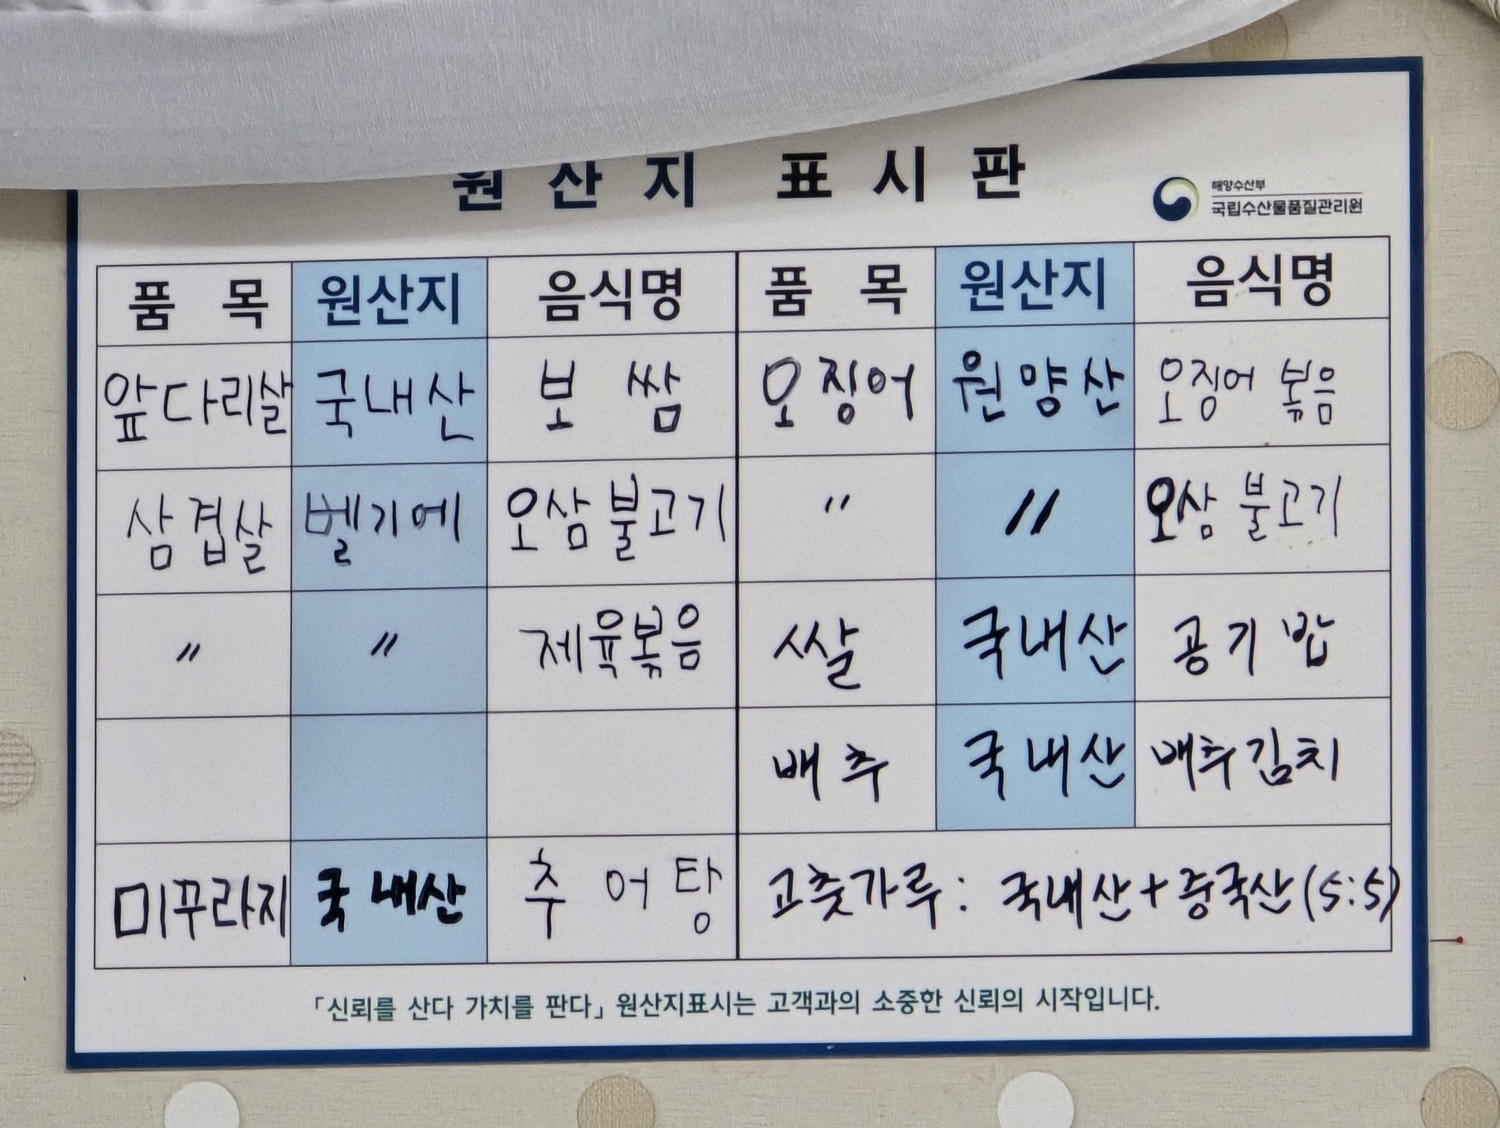 원산지 표시판
해양수산부
국립수산물품질관리원
품 목 원산지 음식명 품 목 원산지 음식명
앞다리살 국내산 보 쌈 오징어 원양산 오징어 볶음
삼겹살 벨기에 오삼불고기 〃 〃 오삼 불고기
〃 〃 제육볶음 쌀 국내산 공기밥
배추 국내산 배추김치
미꾸라지 국내산 추어탕 고춧가루: 국내산+중국산(5:5)
「신뢰를 산다 가치를 판다」 원산지표시는 고객과의 소중한 신뢰의 시작입니다.